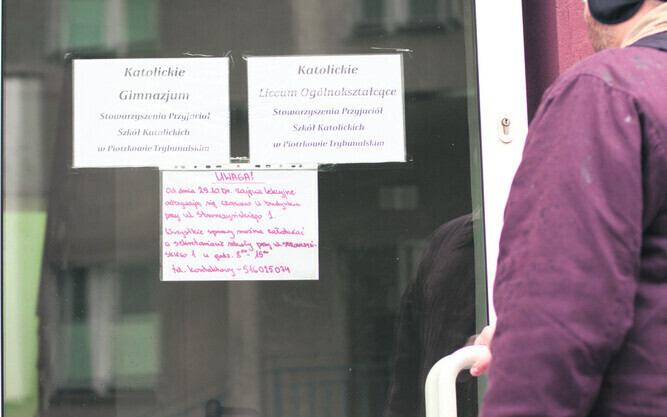 Katolickie
Gimnazjum
Stowarzyszenia Przyjaciół
Szkół Katolickich
w Piotrkowie Trybunalskim
Katolickie
Liceum Ogólnokształcące
Stowarzyszenia Przyjaciół
Szkół Katolickich
w Piotrkowie Trybunalskim
UWAGA!
Od dnia 29.10 br. zajęcia lekcyjne
odbywają się czasowo w budynku
przy ul. Stronczyńskiego 1.
Wszystkie sprawy można załatwiać
w sekretariacie szkoły przy ul. Stronczyń-
skiego 1 w godz. 8⁰⁰-15⁰⁰
tel. kontaktowy - 516025074